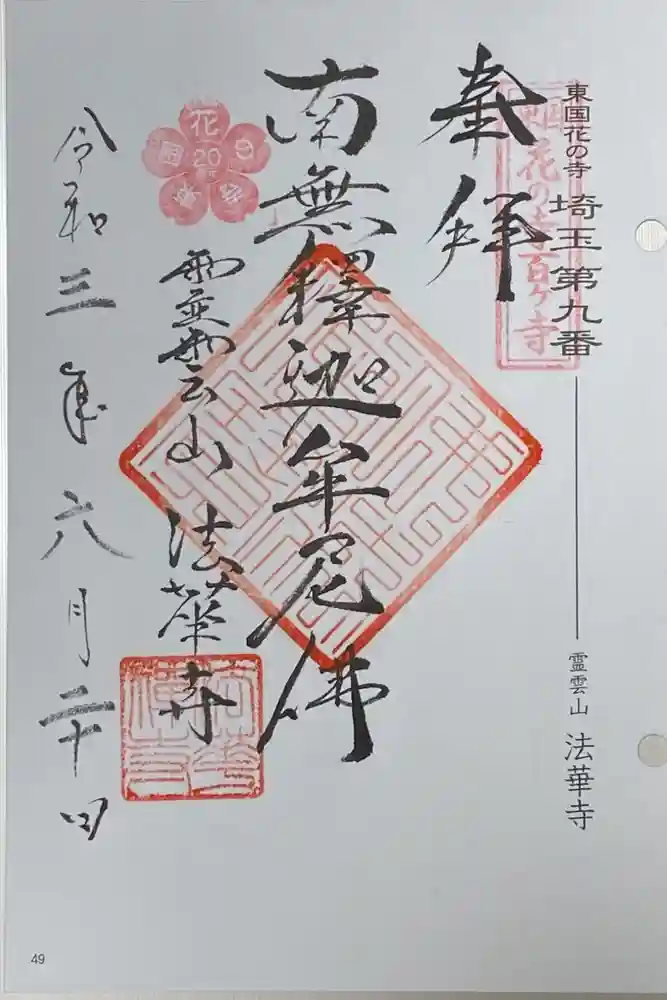 東国花の寺 埼玉第九番
霊雲山 法華寺
花の寺百ヶ寺
奉拝
南無釋迦牟尼佛
霊雲山 法華寺
花
20
令和三年六月二十日
49